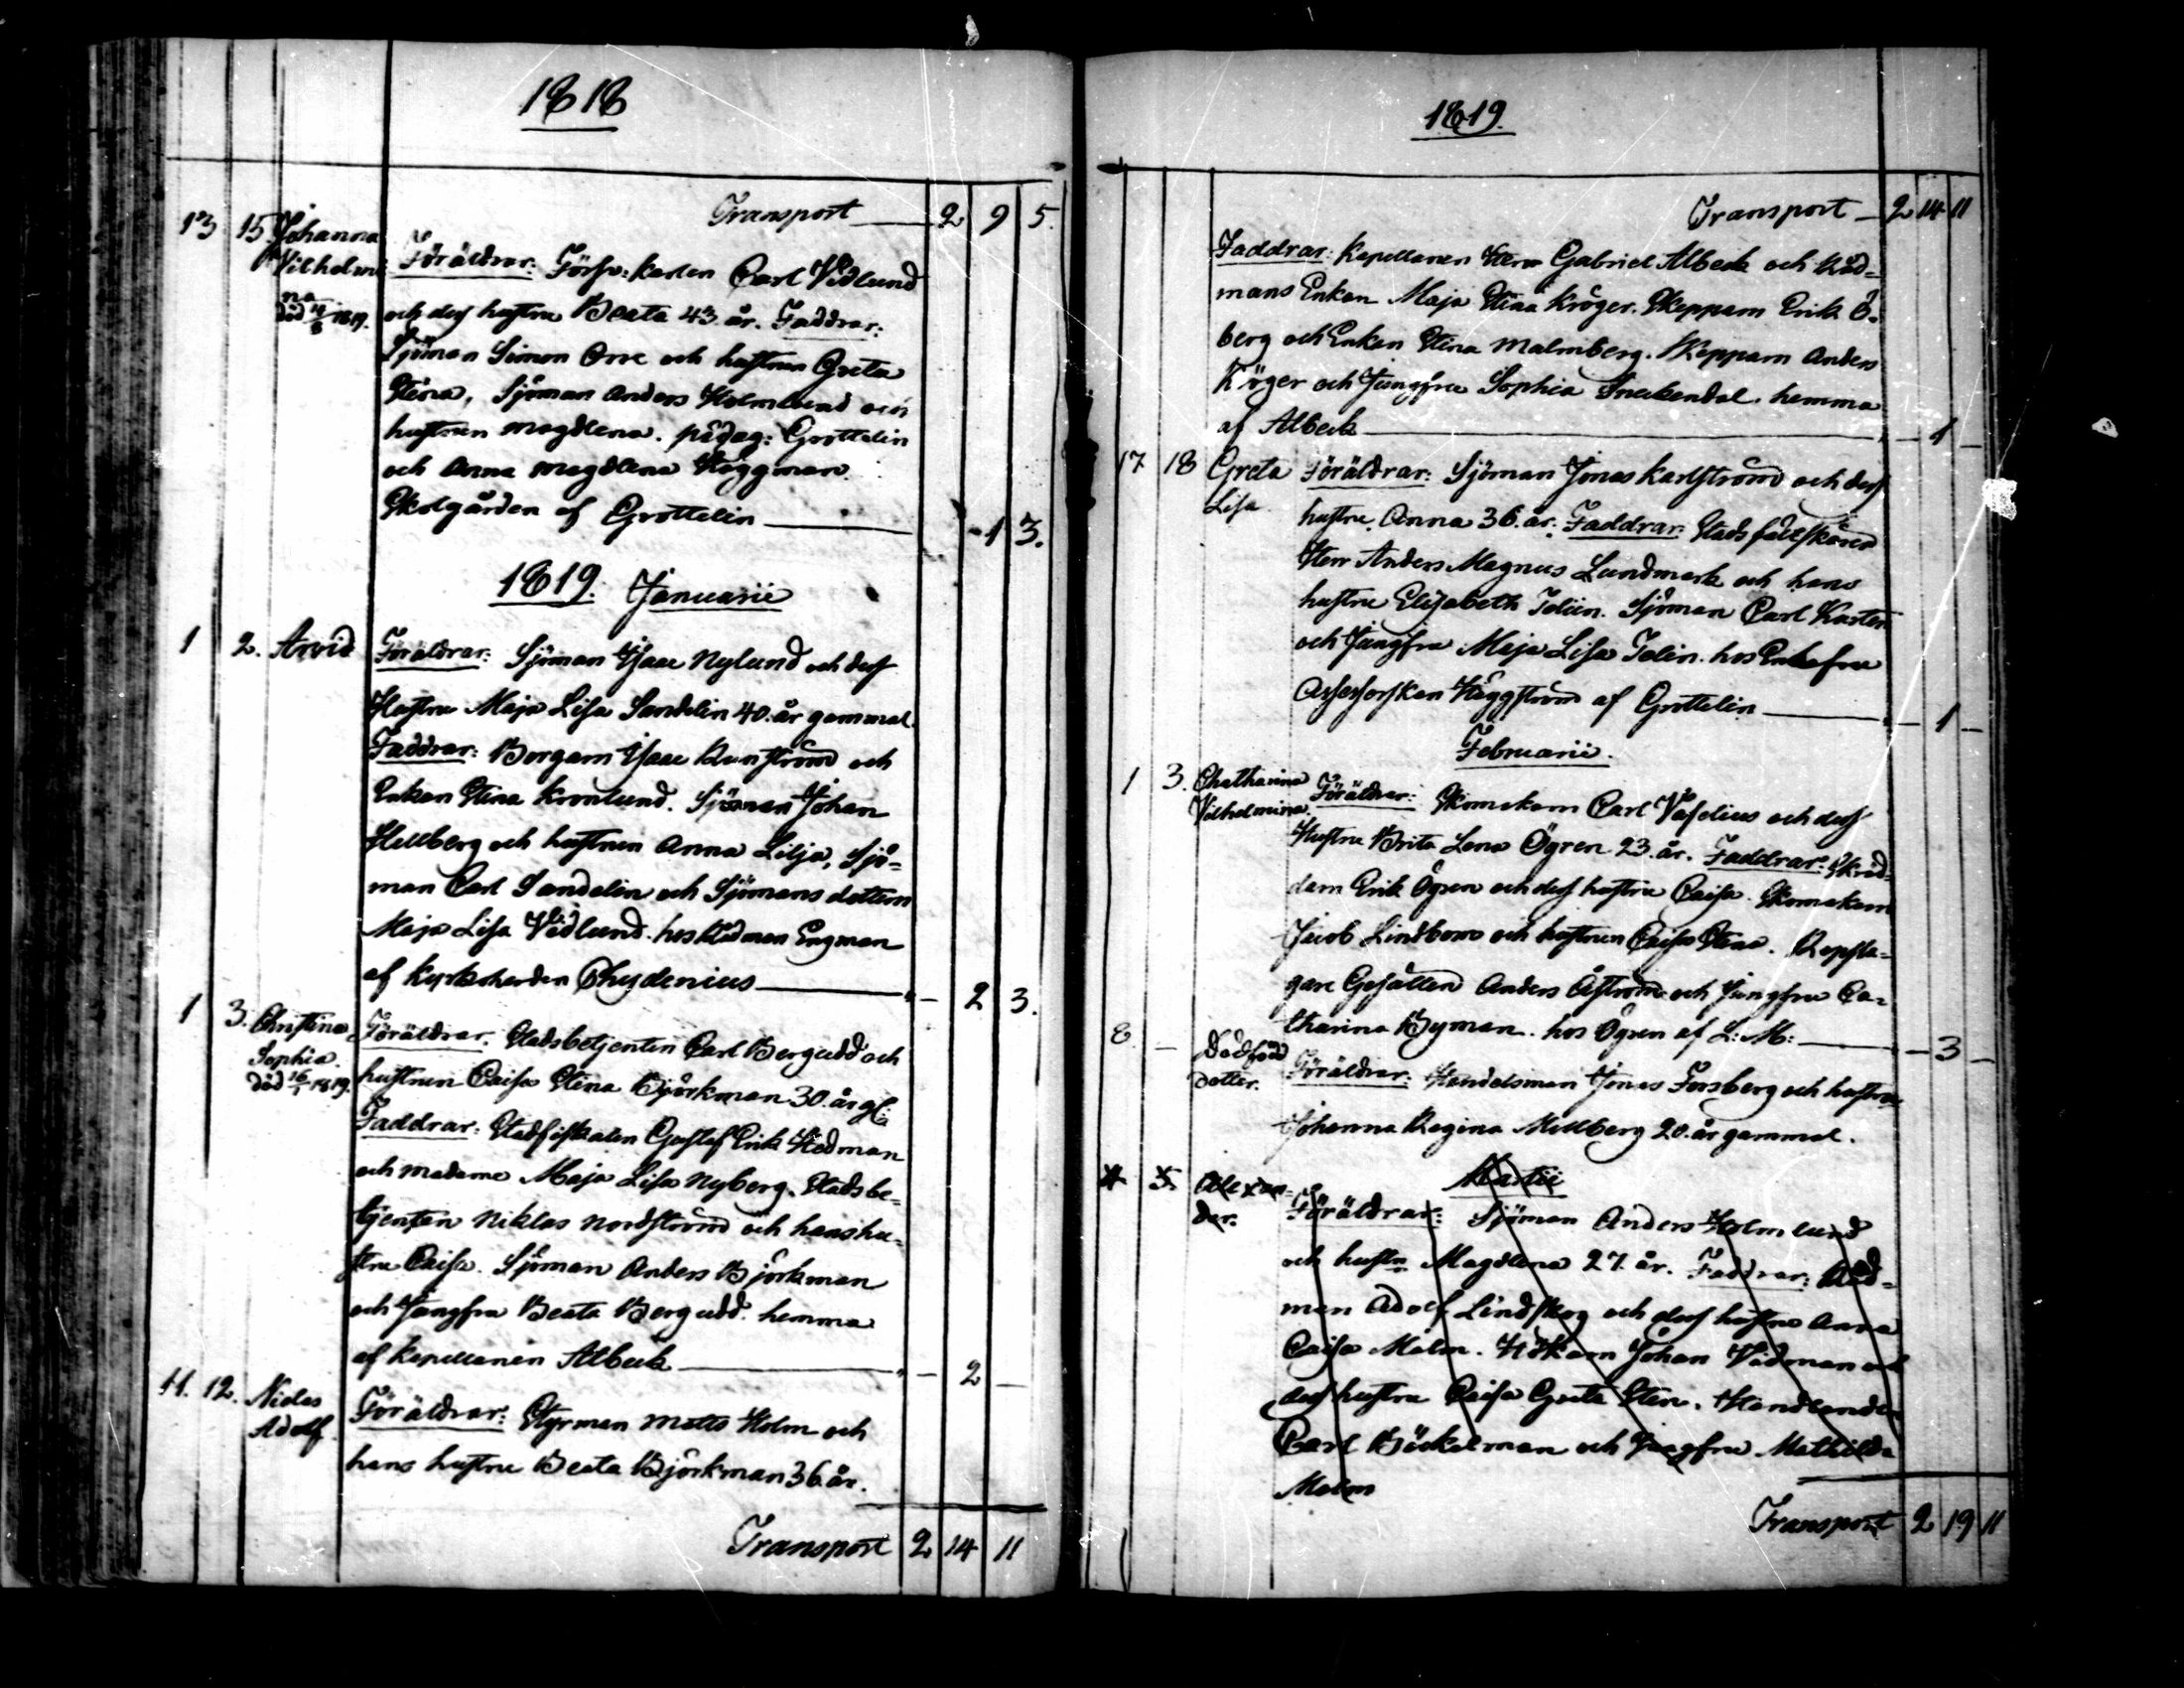 1818
Transport 2 9 5.
13 15. Johanna Vilhelmina
död 11/8 1819.
Föräldrar: Carl Vidlund
och dess hustru Beata 43 år. Faddrar:
Sjöman Simon Orre och hustrun Greta
Stina, Sjöman Anders Holmlund och
hustrun Magdlena. pædag: Grottelin
och Anna Magdlena Häggman.
Skolgården af Grottelin 1 3.
1819. Januarii
1 2. Arvid
Föräldrar: Sjöman Isaac Nylund och dess
Hustru Maja Lisa Sandelin 40. år gammal.
Faddrar: Borgarn Isaac Kunström och
Enkan Stina Kronlund. Sjöman Johan
Hellberg och hustrun Anna Lilja, Sjö=
man Carl Sandelin och Sjömans dottern
Maja Lisa Vidlund. hos Rådman Engman
af Kyrkoherden Chydenius 2 3.
1 3. Christina Sophia
död 16/1 1819.
Föräldrar. Stadsbetjenten Carl Bergudd och
hustrun Caisa Stina Björkman 30. år gl:
Faddrar: Stadsfiskalen Gustaf Erik Hedman
och madame Maja Lisa Nyberg. Stadsbe=
tjenten Niklas Nordström och hans hu=
stru Caisa. Sjöman Anders Björkman
och Jungfru Beata Bergudd. hemma
af kapellanen Albeck 2
11. 12. Niclas Adolf.
Föräldrar: Styrman Matts Holm och
hans hustru Beata Björkman 36. år.
Transport 2 14 11
1819.
Transport 2 14 11
Faddrar: Kapellanen Herr Gabriel Albeck och Råd=
mans Enkan Maja Stina Kröger. Skepparn Erik Ö=
berg och Enkan Stina Malmberg. Skepparn Anders
Kröger och Jungfru Sophia Snekendal. hemma
af Albeck 1
17 18 Greta Lisa
Föräldrar: Sjöman Jonas Karlström och dess
hustru Anna 36. år. Faddrar: Stads fältskären
Herr Anders Magnus Lundmark och hans
hustru Elisabeth Tolin. Sjöman Carl Karsten
och Jungfru Maja Lisa Tolin. hos Enkefru
Assessorskan Häggström af Grottelin 1
Februarii.
1 3. Chatharina Vilhelmina
Föräldrar: Skomakarn Carl Vaselius och dess
Hustru Brita Lena Ögren 23. år. Faddrar: Skräd=
darn Erik Ögren och dess hustru Caisa. Skomakarn
Jacob Lindbom och hustrun Caisa Stina. Repsla=
gare Gesällen Anders Åström och Jungfru Ca=
tharina Byman. hos Ögren af L: M: 3
8 Dödfödd Dotter.
Föräldrar: Handelsman Jonas Forsberg och hustru
Johanna Regina Mellberg 20. år gammal.
Martii
4 5. Alexander.
Föräldrar: Sjöman Anders Holmlund
och hustru Magdlena 27. år. Faddrar: Råd=
man Adolf Lindskog och dess hustru Anna
Caisa Malm. Johan Vidman och
dess hustru Caisa Greta Sten. Handlanden
Carl Böckelman och Jungfru Mathilda
Malm
Transport 2 19 11